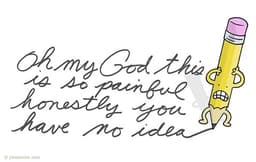 Oh my God this
is so painful
honestly you
have no idea